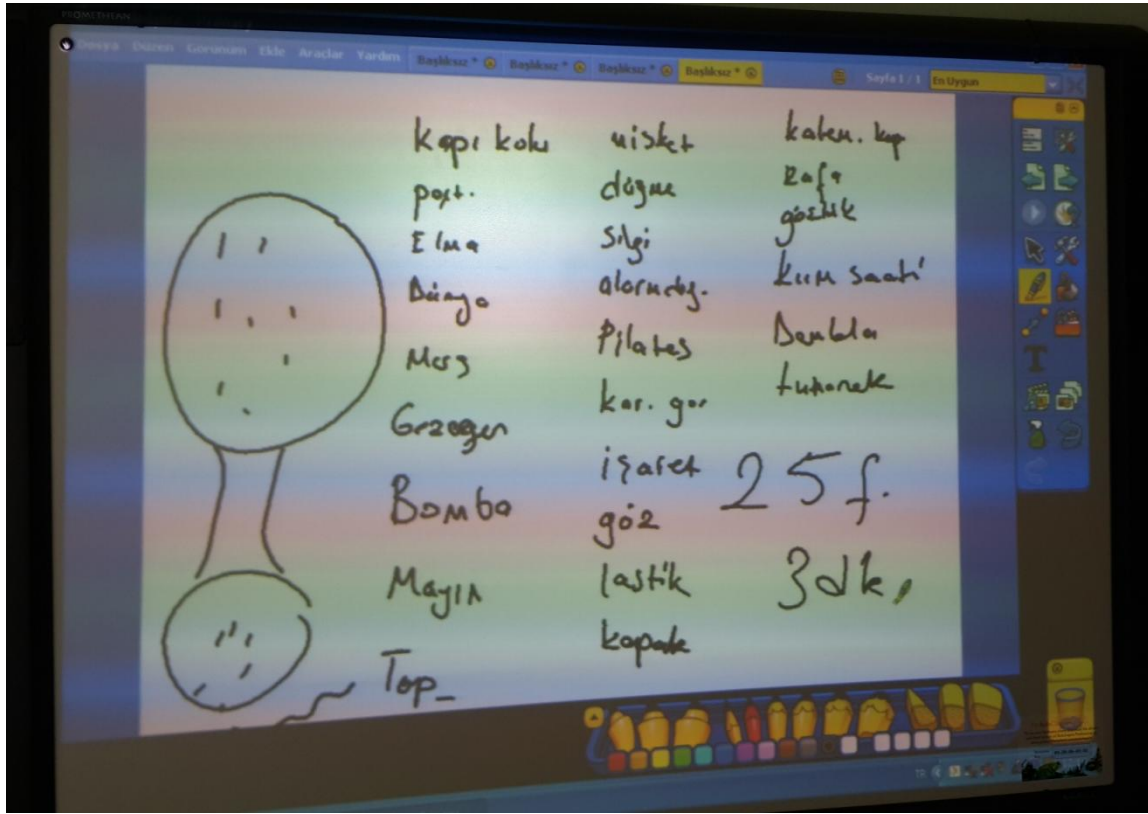 PROMETHEAN
Dosya Düzen Görünüm Ekle Araçlar Yardım
Başlıksız * Başlıksız * Başlıksız * Başlıksız *
Sayfa 1 / 1 En Uygun
Kapı kolu
port.
Elma
Dünya
Mars
Gezegen
Bomba
Mayın
Top
misket
düğme
silgi
Pilates
kar. gör
işaret
göz
lastik
kapak
kafa
gözlük
kum saati
Dambla
tutanak
25 f.
3dk.
T
TR